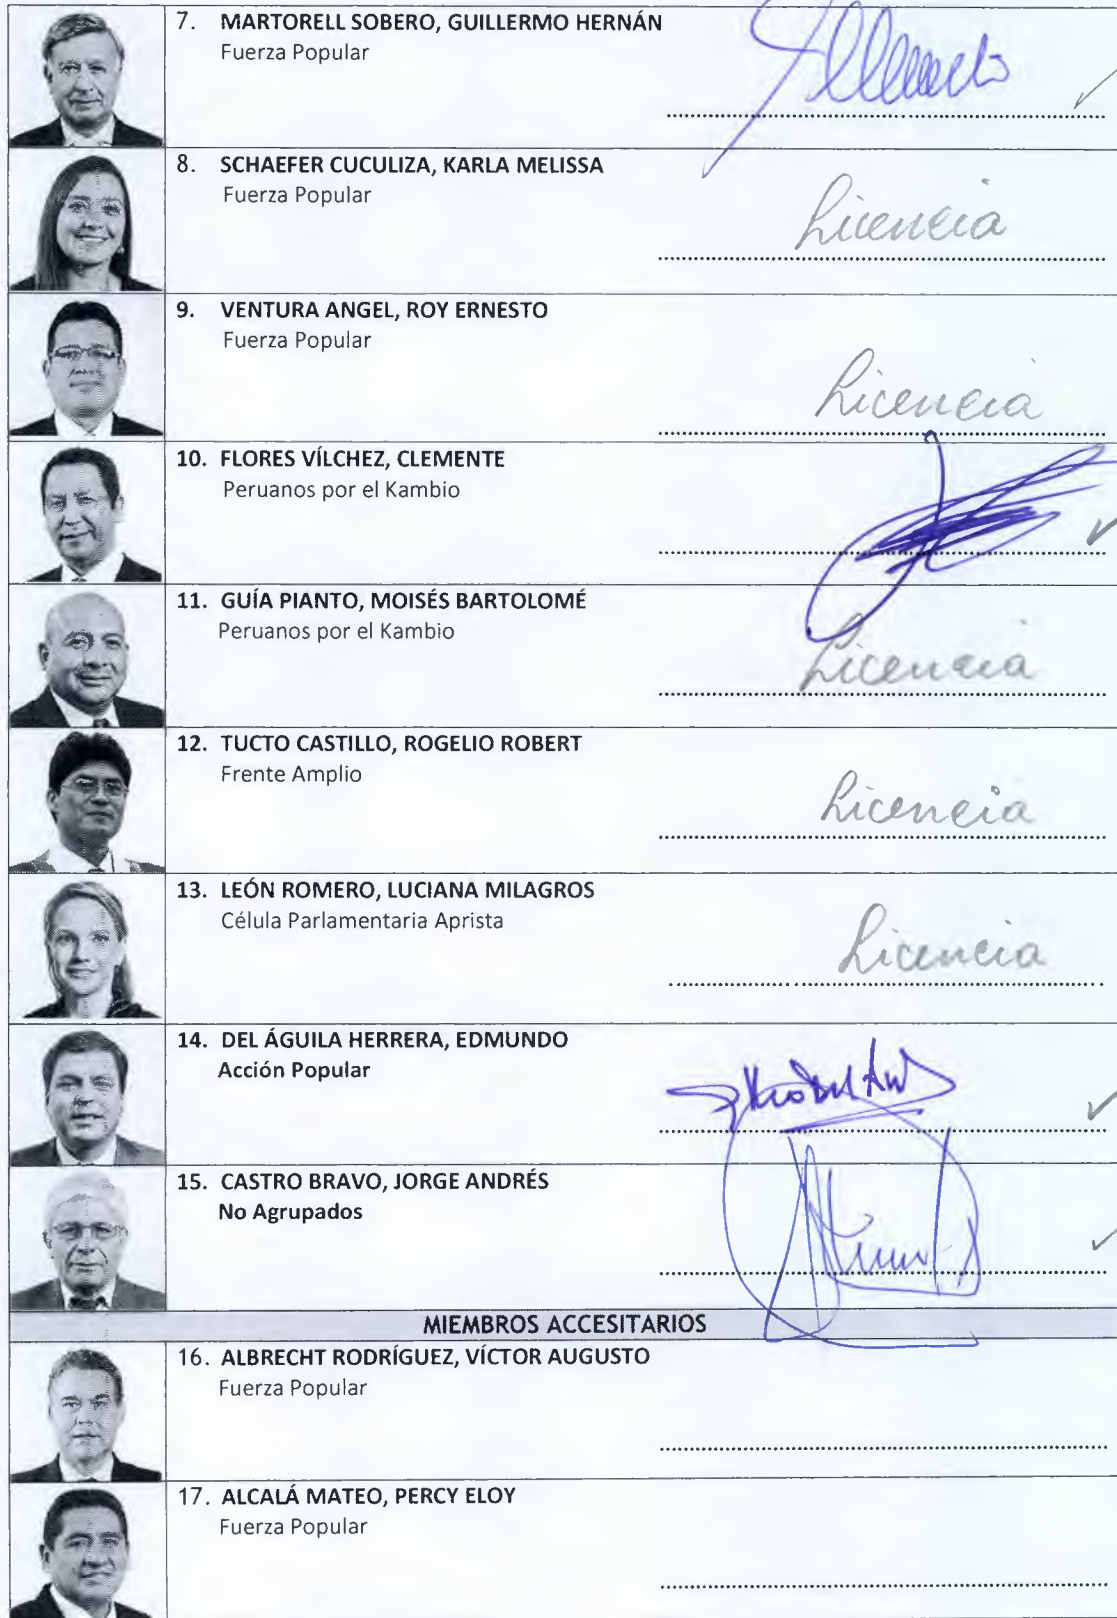 7. MARTORELL SOBERO, GUILLERMO HERNÁN
Fuerza Popular
8. SCHAEFER CUCULIZA, KARLA MELISSA
Fuerza Popular
Licencia
9. VENTURA ANGEL, ROY ERNESTO
Fuerza Popular
Licencia
10. FLORES VÍLCHEZ, CLEMENTE
Peruanos por el Kambio
11. GUÍA PIANTO, MOISÉS BARTOLOMÉ
Peruanos por el Kambio
Licencia
12. TUCTO CASTILLO, ROGELIO ROBERT
Frente Amplio
Licencia
13. LEÓN ROMERO, LUCIANA MILAGROS
Célula Parlamentaria Aprista
Licencia
14. DEL ÁGUILA HERRERA, EDMUNDO
Acción Popular
15. CASTRO BRAVO, JORGE ANDRÉS
No Agrupados
MIEMBROS ACCESITARIOS
16. ALBRECHT RODRÍGUEZ, VÍCTOR AUGUSTO
Fuerza Popular
17. ALCALÁ MATEO, PERCY ELOY
Fuerza Popular